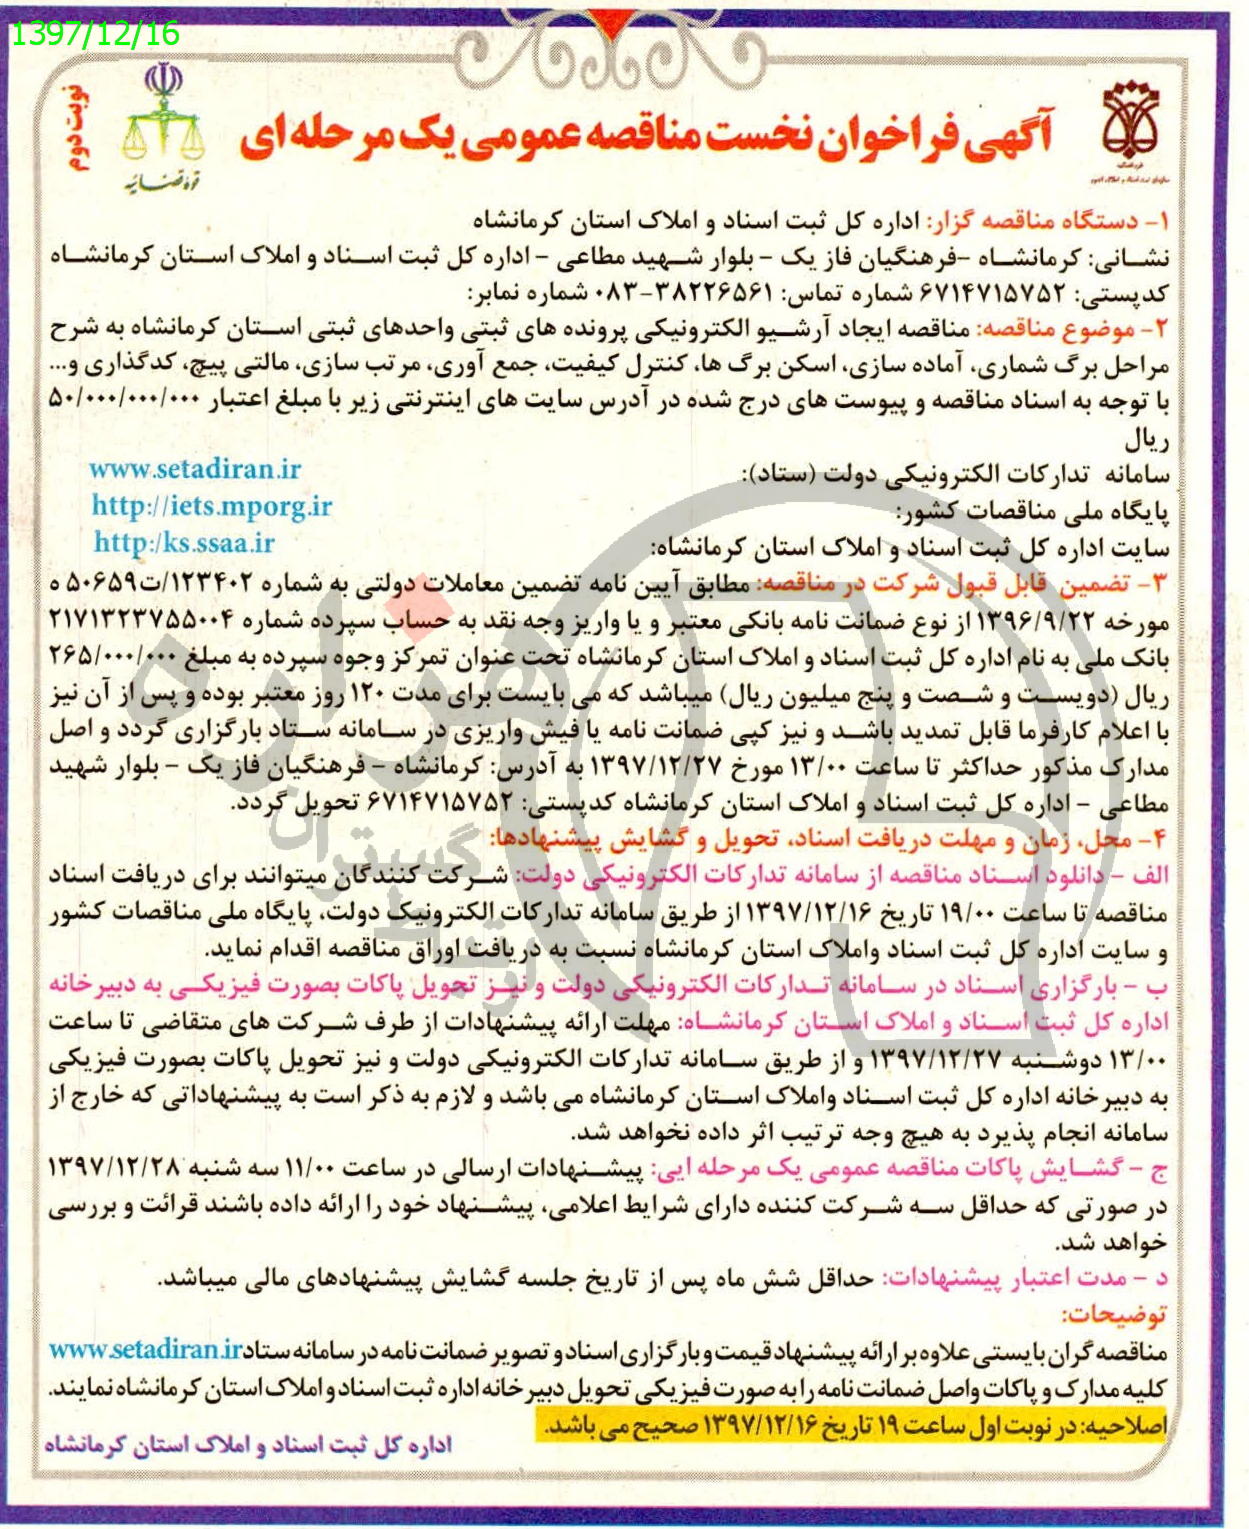 1397/12/16
نوبت دوم
قوه قضائیه
آگهی فراخوان نخست مناقصه عمومی یک مرحله ای
۱- دستگاه مناقصه گزار: اداره کل ثبت اسناد و املاک استان کرمانشاه
نشانی: کرمانشاه -فرهنگیان فاز یک - بلوار شهید مطاعی - اداره کل ثبت اسناد و املاک استان کرمانشاه
کدپستی: ۶۷۱۴۷۱۵۷۵۲ شماره تماس: ۳۸۲۲۶۵۶۱-۰۸۳ شماره نمابر:
۲- موضوع مناقصه: مناقصه ایجاد آرشیو الکترونیکی پرونده های ثبتی واحدهای ثبتی استان کرمانشاه به شرح
مراحل برگ شماری، آماده سازی، اسکن برگ ها، کنترل کیفیت، جمع آوری، مرتب سازی، مالتی پیچ، کدگذاری و...
با توجه به اسناد مناقصه و پیوست های درج شده در آدرس سایت های اینترنتی زیر با مبلغ اعتبار ۵۰/۰۰۰/۰۰۰/۰۰۰
ریال
سامانه تدارکات الکترونیکی دولت (ستاد): www.setadiran.ir
پایگاه ملی مناقصات کشور: http://iets.mporg.ir
سایت اداره کل ثبت اسناد و املاک استان کرمانشاه: http:/ks.ssaa.ir
۳- تضمین قابل قبول شرکت در مناقصه: مطابق آیین نامه تضمین معاملات دولتی به شماره ۱۲۳۴۰۲/ت۵۰۶۵۹ ه
مورخه ۱۳۹۶/۹/۲۲ از نوع ضمانت نامه بانکی معتبر و یا واریز وجه نقد به حساب سپرده شماره ۲۱۷۱۳۲۳۷۵۵۰۰۴
بانک ملی به نام اداره کل ثبت اسناد و املاک استان کرمانشاه تحت عنوان تمرکز وجوه سپرده به مبلغ ۲۶۵/۰۰۰/۰۰۰
ریال (دویست و شصت و پنج میلیون ریال) میباشد که می بایست برای مدت ۱۲۰ روز معتبر بوده و پس از آن نیز
با اعلام کارفرما قابل تمدید باشد و نیز کپی ضمانت نامه یا فیش واریزی در سامانه ستاد بارگزاری گردد و اصل
مدارک مذکور حداکثر تا ساعت ۱۳/۰۰ مورخ ۱۳۹۷/۱۲/۲۷ به آدرس: کرمانشاه - فرهنگیان فاز یک - بلوار شهید
مطاعی - اداره کل ثبت اسناد و املاک استان کرمانشاه کدپستی: ۶۷۱۴۷۱۵۷۵۲ تحویل گردد.
۴- محل، زمان و مهلت دریافت اسناد، تحویل و گشایش پیشنهادها:
الف - دانلود اسناد مناقصه از سامانه تدارکات الکترونیکی دولت: شرکت کنندگان میتوانند برای دریافت اسناد
مناقصه تا ساعت ۱۹/۰۰ تاریخ ۱۳۹۷/۱۲/۱۶ از طریق سامانه تدارکات الکترونیک دولت، پایگاه ملی مناقصات کشور
و سایت اداره کل ثبت اسناد واملاک استان کرمانشاه نسبت به دریافت اوراق مناقصه اقدام نماید.
ب - بارگزاری اسناد در سامانه تدارکات الکترونیکی دولت و نیز تحویل پاکات بصورت فیزیکی به دبیرخانه
اداره کل ثبت اسناد و املاک استان کرمانشاه: مهلت ارائه پیشنهادات از طرف شرکت های متقاضی تا ساعت
۱۳/۰۰ دوشنبه ۱۳۹۷/۱۲/۲۷ و از طریق سامانه تدارکات الکترونیکی دولت و نیز تحویل پاکات بصورت فیزیکی
به دبیرخانه اداره کل ثبت اسناد واملاک استان کرمانشاه می باشد و لازم به ذکر است به پیشنهاداتی که خارج از
سامانه انجام پذیرد به هیچ وجه ترتیب اثر داده نخواهد شد.
ج - گشایش پاکات مناقصه عمومی یک مرحله ایی: پیشنهادات ارسالی در ساعت ۱۱/۰۰ سه شنبه ۱۳۹۷/۱۲/۲۸
در صورتی که حداقل سه شرکت کننده دارای شرایط اعلامی، پیشنهاد خود را ارائه داده باشند قرائت و بررسی
خواهد شد.
د - مدت اعتبار پیشنهادات: حداقل شش ماه پس از تاریخ جلسه گشایش پیشنهادهای مالی میباشد.
توضیحات:
مناقصه گران بایستی علاوه بر ارائه پیشنهاد قیمت و بارگزاری اسناد و تصویر ضمانت نامه در سامانه ستاد www.setadiran.ir
کلیه مدارک و پاکات واصل ضمانت نامه را به صورت فیزیکی تحویل دبیرخانه اداره ثبت اسناد و املاک استان کرمانشاه نمایند.
اصلاحیه: در نوبت اول ساعت ۱۹ تاریخ ۱۳۹۷/۱۲/۱۶ صحیح می باشد.
اداره کل ثبت اسناد و املاک استان کرمانشاه